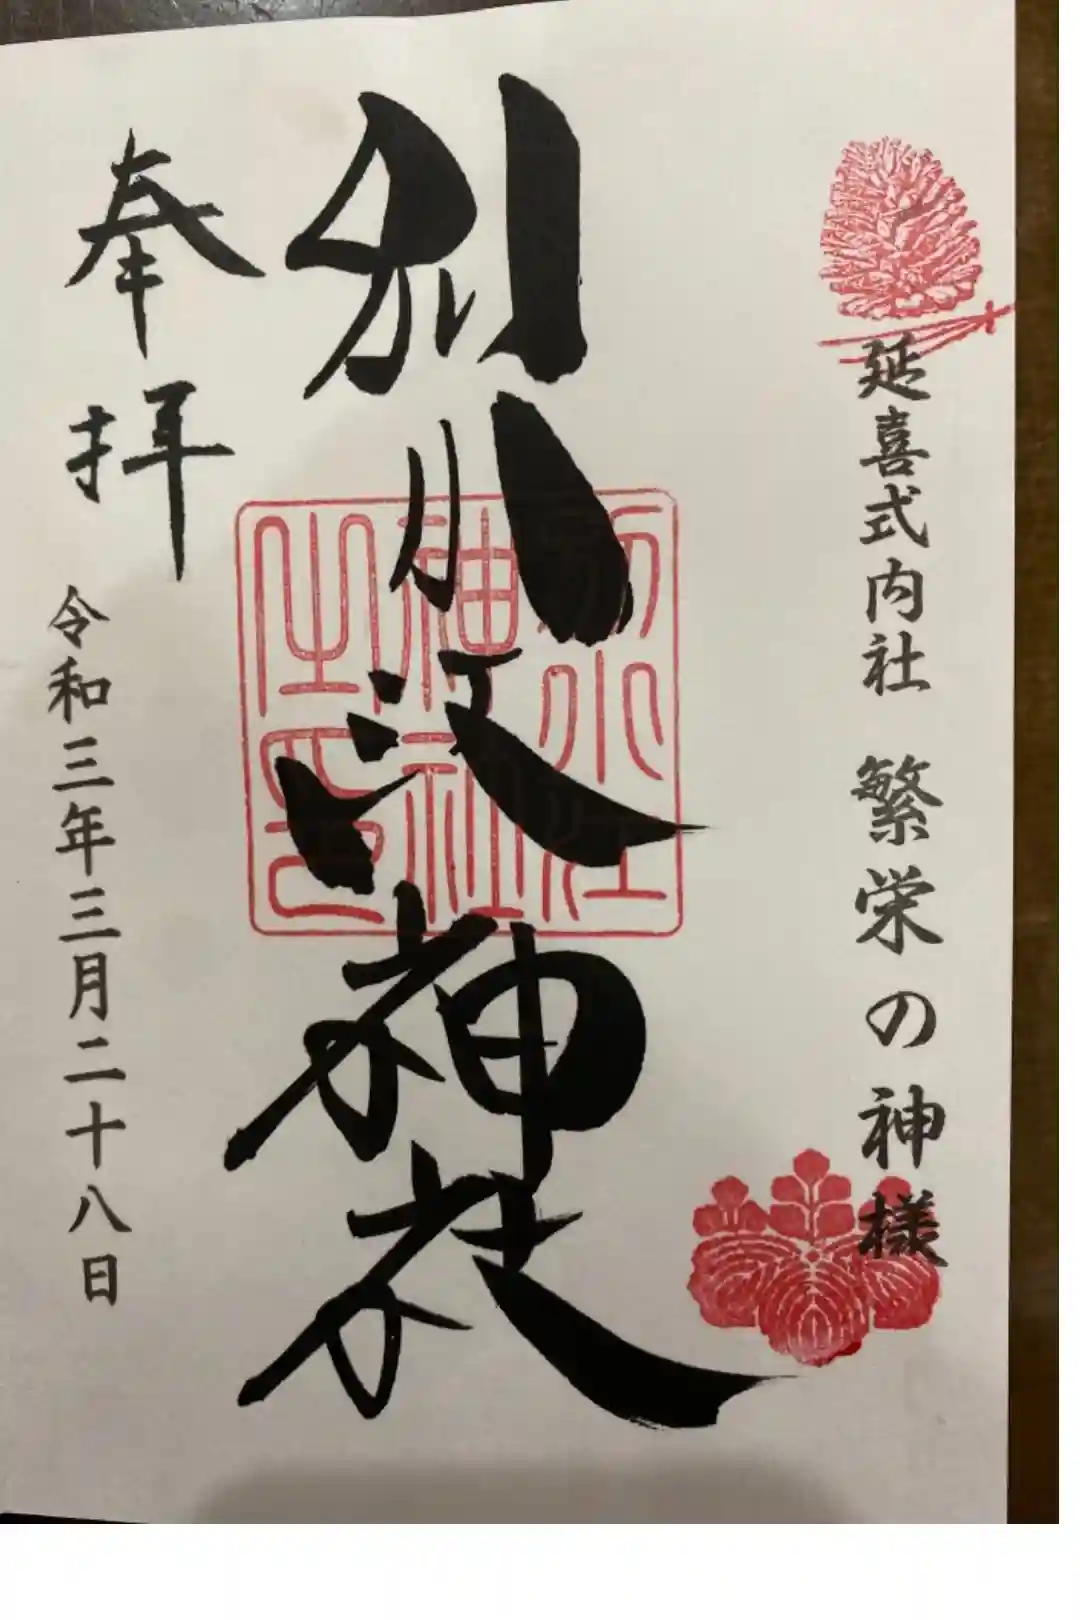 延喜式内社 繁栄の神様
別小江神社
別小江
神社
之印
奉拝
令和三年三月二十八日